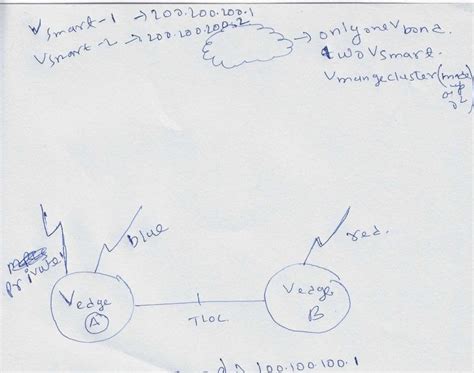 Vsmart-1 → 200.200.200.1
Vsmart-2 → 200.200.200.2
→ only one Vbond.
two Vsmart.
Vmangecluster (made
up
of
2
blue
red.
private1
Vedge
A
TLOC
Vedge
B
→ 100.100.100.1